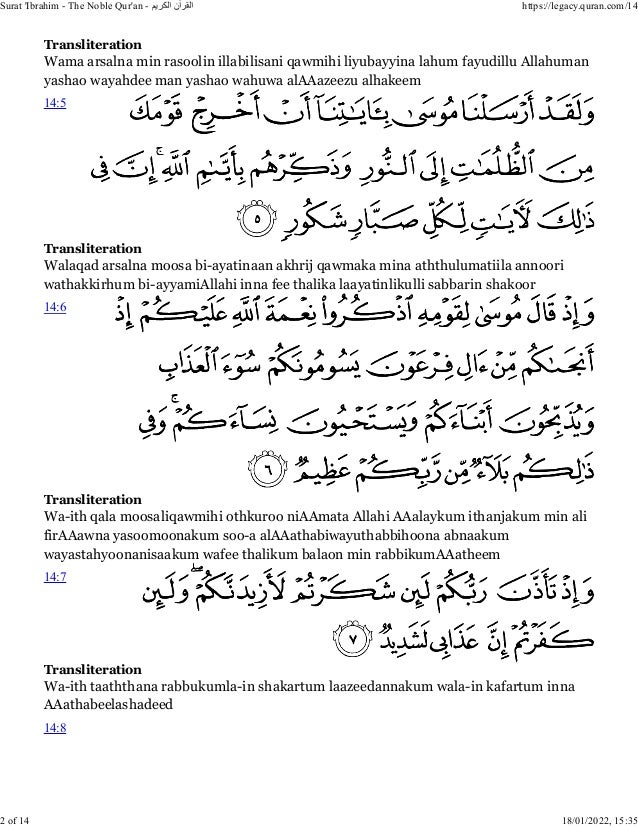 Surat 'Ibrahim - The Noble Qur'an - القرآن الكريم
https://legacy.quran.com/14
Transliteration
Wama arsalna min rasoolin illabilisani qawmihi liyubayyina lahum fayudillu Allahuman
yashao wayahdee man yashao wahuwa alAAazeezu alhakeem
14:5
وَلَقَدْ أَرْسَلْنَا مُوسَىٰ بِـَٔايَـٰتِنَآ أَنْ أَخْرِجْ قَوْمَكَ
مِنَ ٱلظُّلُمَـٰتِ إِلَى ٱلنُّورِ وَذَكِّرْهُم بِأَيَّىٰمِ ٱللَّهِ ۚ إِنَّ فِى
ذَٰلِكَ لَـَٔايَـٰتٍ لِّكُلِّ صَبَّارٍ شَكُورٍ ٥
Transliteration
Walaqad arsalna moosa bi-ayatinaan akhrij qawmaka mina aththulumatiila annoori
wathakkirhum bi-ayyamiAllahi inna fee thalika laayatinlikulli sabbarin shakoor
14:6
وَإِذْ قَالَ مُوسَىٰ لِقَوْمِهِ ٱذْكُرُوا۟ نِعْمَةَ ٱللَّهِ عَلَيْكُمْ إِذْ
أَنجَىٰكُم مِّنْ ءَالِ فِرْعَوْنَ يَسُومُونَكُمْ سُوٓءَ ٱلْعَذَابِ
وَيُذَبِّحُونَ أَبْنَآءَكُمْ وَيَسْتَحْيُونَ نِسَآءَكُمْ ۚ وَفِى
ذَٰلِكُم بَلَآءٌ مِّن رَّبِّكُمْ عَظِيمٌ ٦
Transliteration
Wa-ith qala moosaliqawmihi othkuroo niAAmata Allahi AAalaykum ithanjakum min ali
firAAawna yasoomoonakum soo-a alAAathabiwayuthabbihoona abnaakum
wayastahyoonanisaakum wafee thalikum balaon min rabbikumAAatheem
14:7
وَإِذْ تَأَذَّنَ رَبُّكُمْ لَئِن شَكَرْتُمْ لَأَزِيدَنَّكُمْ ۖ وَلَئِن
كَفَرْتُمْ إِنَّ عَذَابِى لَشَدِيدٌ ٧
Transliteration
Wa-ith taaththana rabbukumla-in shakartum laazeedannakum wala-in kafartum inna
AAathabeelashadeed
14:8
2 of 14
18/01/2022, 15:35